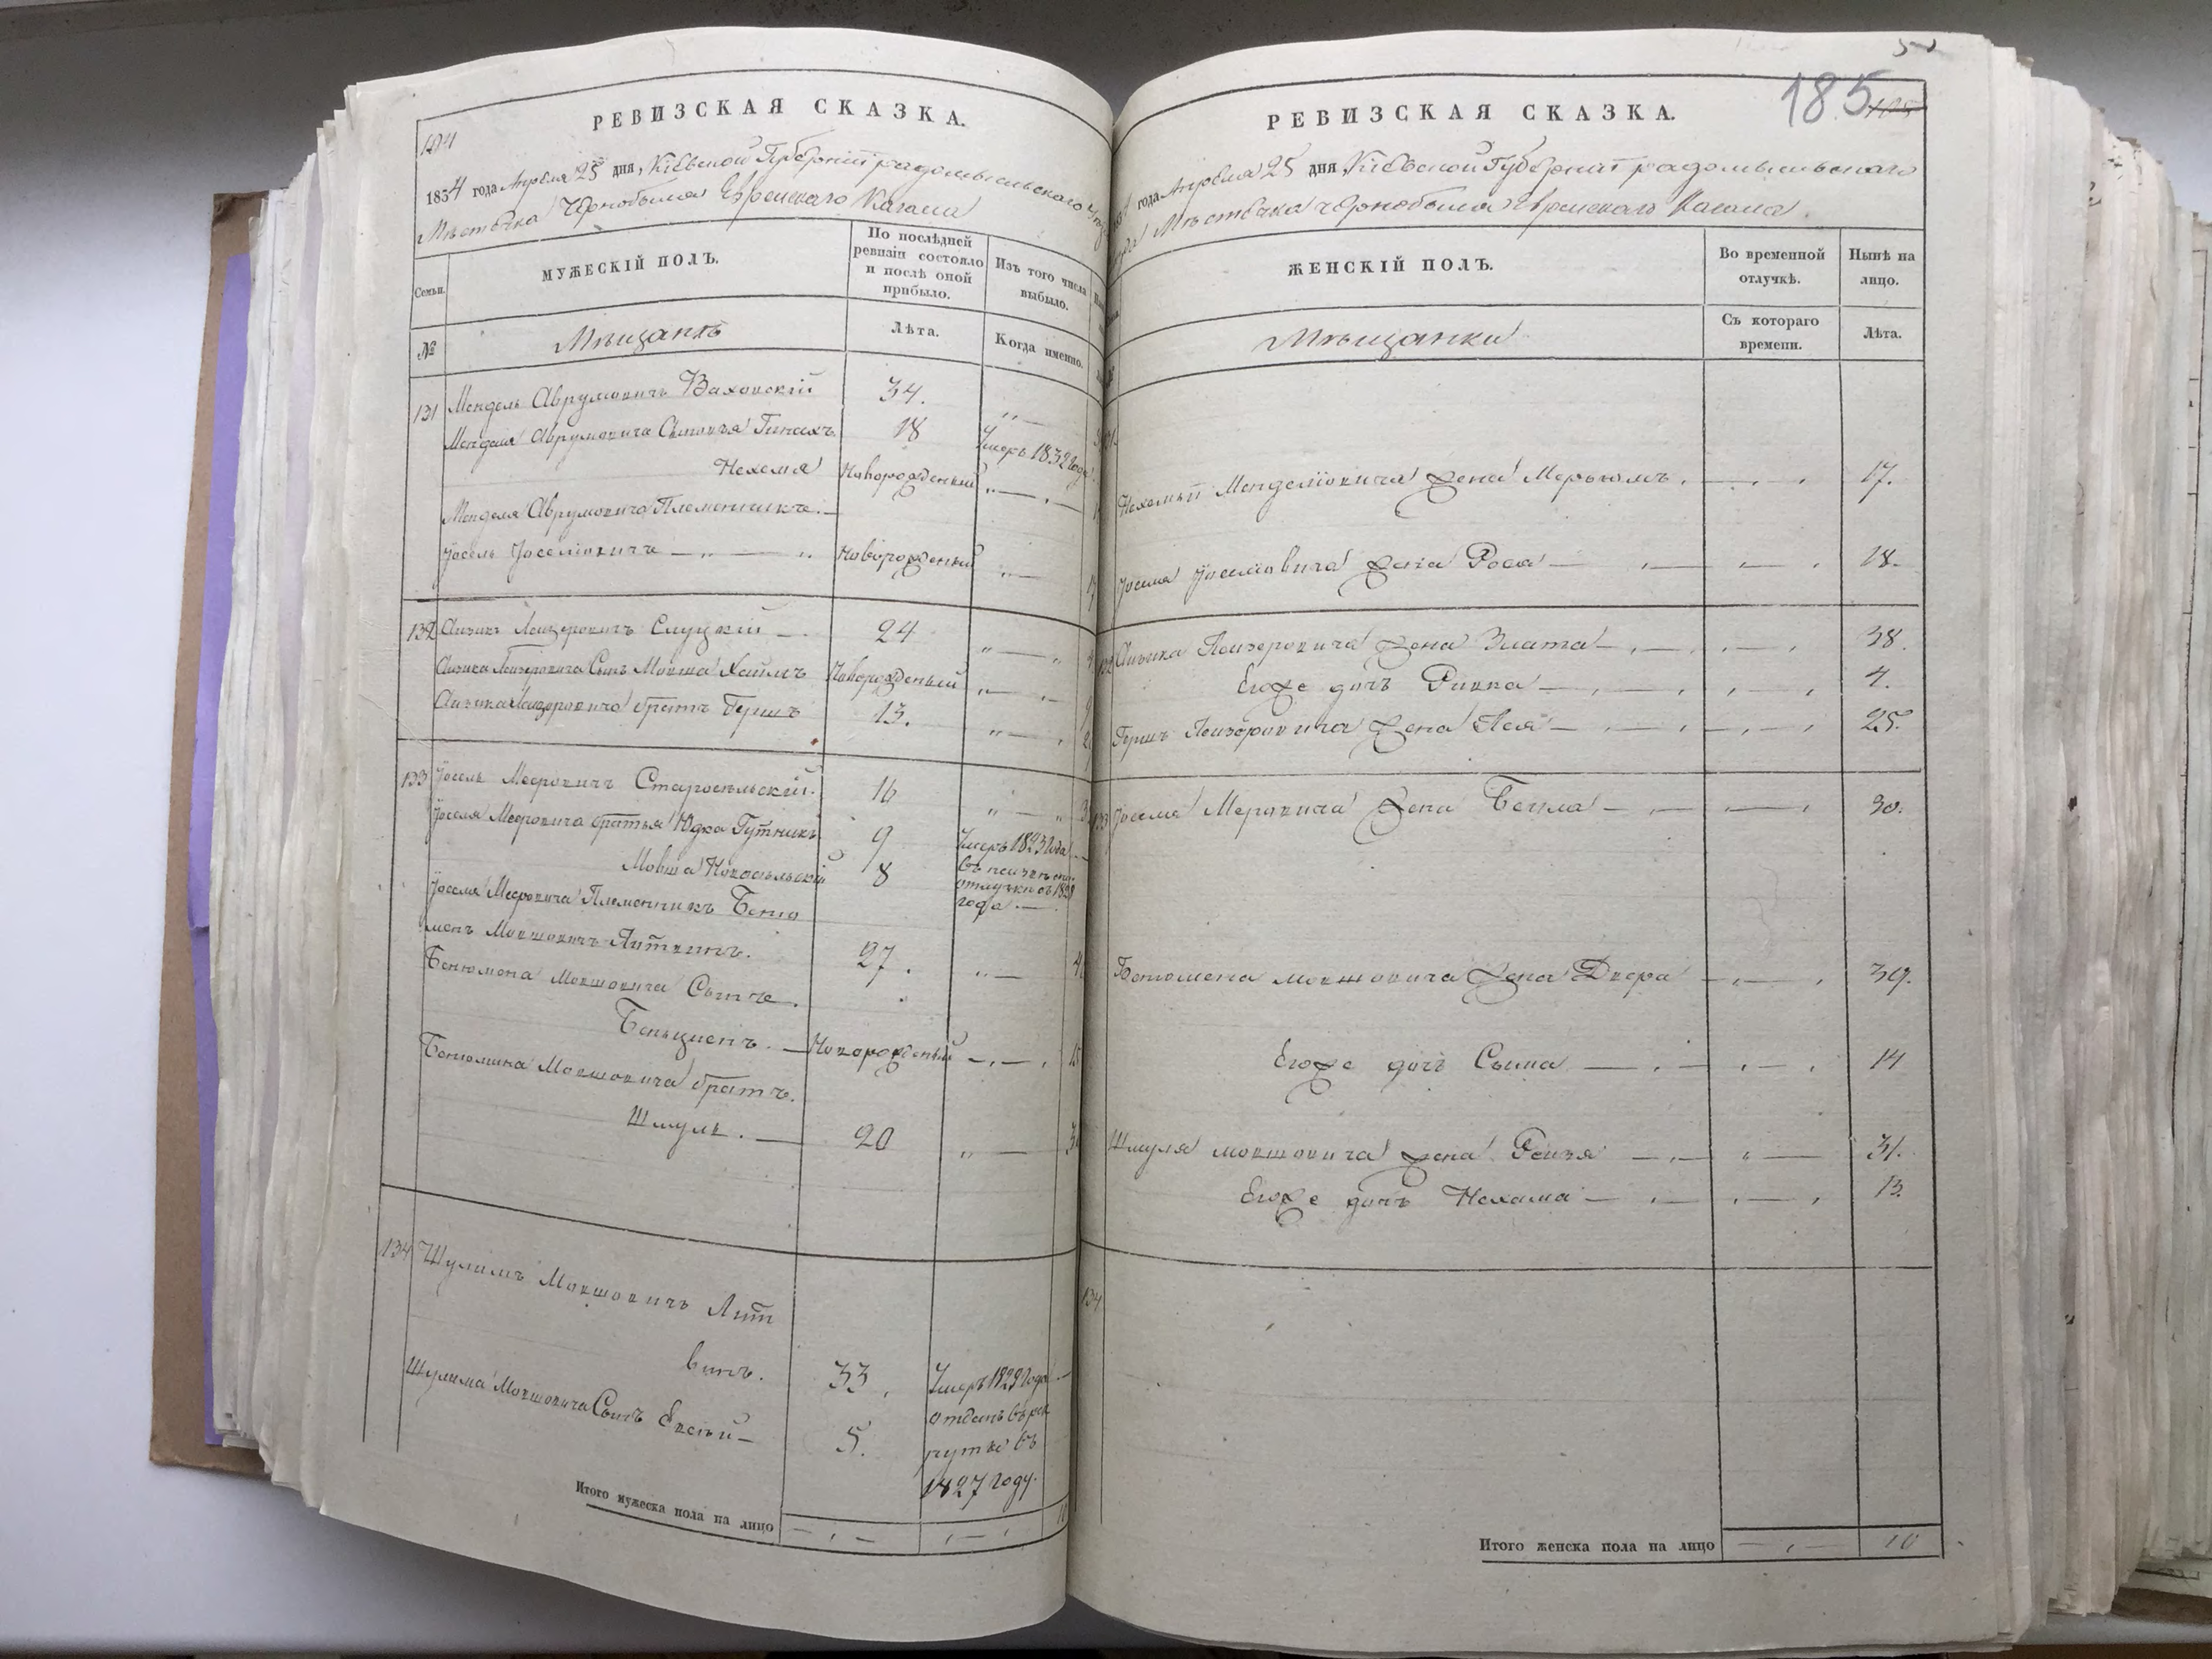 РЕВИЗСКАЯ СКАЗКА.
1834 года Апреля 25 дня, Кіевской Губерніи радомысльского
Мѣстечка Чернобыля Еврейскаго Кагала
Семьи.
МУЖЕСКІЙ ПОЛЪ.
По послѣдней ревизіи состояло и послѣ оной прибыло.
Изъ того числа выбыло.
№
Мѣщанъ
Лѣта.
Когда именно.
131 Мендель Аврумовичъ Ваховскій 34.
Менделя Аврумовича Сыновья Пинхасъ 18 Умеръ 1832 года
Нехемя Новорожденный
Менделя Аврумовича Племенникъ
Іосель Іоселіовичъ Новорожденный
132 Айзикъ Лейзеровичъ Слуцкій 24
Айзика Лейзеровича Сынъ Мовша Хаимъ Новорожденый
Айзика Лейзеровича братъ Гершъ 13.
133 Іосель Мееровичъ Старосѣльскій 16
Іоселя Мееровича братья Юдка Гутникъ 9 Умеръ 1823 года
Мовша Новосѣльскій 8 въ отлучки съ 18 года
Іоселя Мееровича Племенникъ Беню
менъ Мовшовичъ Литвинъ. 27.
Бенюмена Мовшовича Сынъ.
Беньционъ. Новорожденый
Бенюмина Мовшовича братъ.
Шмуль. 20
134 Шулимъ Мовшовичъ Лит
винъ. 33, Умеръ 1829 года
Шулима Мовшовича Сынъ Евсѣй 5. отданъ въ рек
руты въ
1827 году.
Итого мужеска пола на лицо
185
РЕВИЗСКАЯ СКАЗКА.
года Апреля 25 дня Кіевской Губерніи радомысльского
Мѣстечка Чернобыля Еврейскаго Кагала
ЖЕНСКІЙ ПОЛЪ.
Во временной отлучкѣ.
Нынѣ на лицо.
Мѣщанки
Съ котораго времени.
Лѣта.
Нехемьи Менделіовича жена Мерьюмъ. 17.
Іоселя Іоселіовича жена Рося 18.
Айзика Лейзеровича жена Злата 38.
Егоже дочь Ривка 4.
Гершъ Лейзеровича жена Лея 25.
133 Іоселя Меровича жена Бейла 30.
Бенюмена Мовшовича жена Двера 39.
Егоже дочь Сыма 14
Шмуля Мовшовича жена Рейзя 31.
Егоже дочь Нехама 13.
134
Итого женска пола на лицо 10